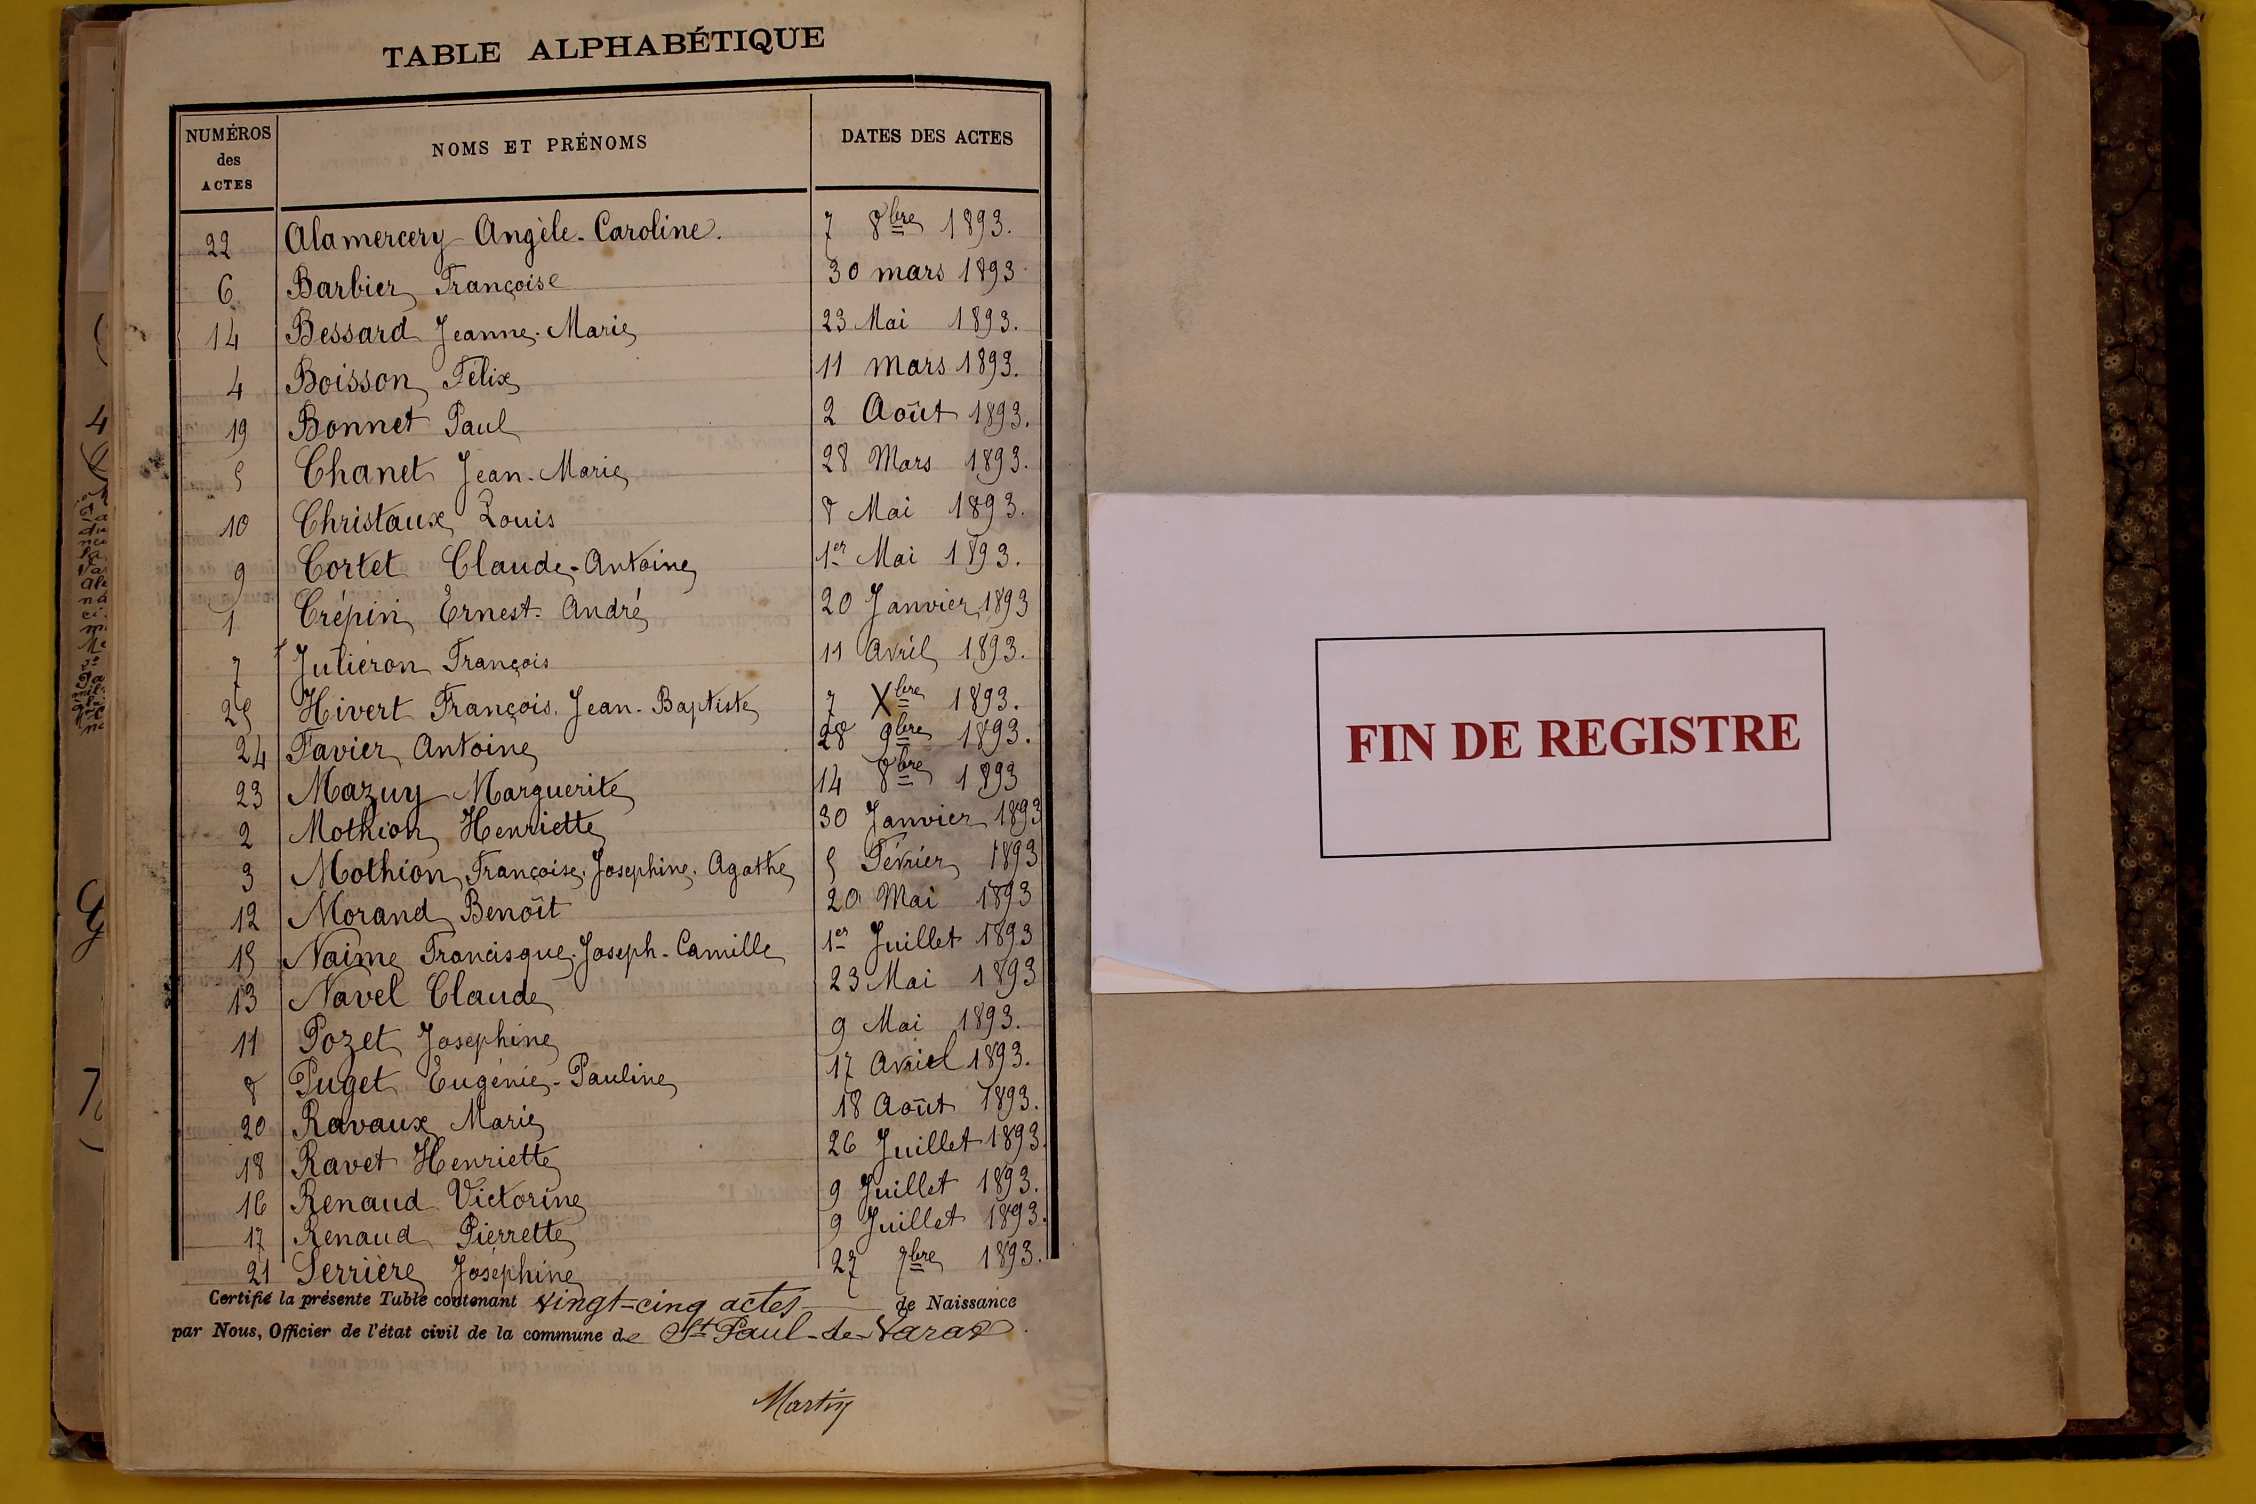 TABLE ALPHABÉTIQUE
NUMÉROS des ACTES NOMS ET PRÉNOMS DATES DES ACTES
22 Alamercery Angèle-Caroline. 7 8bre 1893.
6 Barbier Françoise 30 mars 1893
14 Bessard Jeanne-Marie 23 Mai 1893.
4 Boisson Félix 11 mars 1893.
19 Bonnet Paul 2 Août 1893.
5 Chanel Jean-Marie 28 Mars 1893.
10 Christaux Louis 8 Mai 1893.
9 Cortet Claude-Antoine 1er Mai 1893.
1 Crépin Ernest-André 20 Janvier 1893
7 Jutiéron François 11 Avril 1893.
25 Hivert François Jean-Baptiste 7 Xbre 1893.
24 Favier Antoine 28 9bre 1893.
23 Mazuy Marguerite 14 8bre 1893
2 Mothion Henriette 30 Janvier 1893
3 Mothion Françoise Josephine Agathe 5 Février 1893
12 Morand Benoît 20 Mai 1893
15 Naime Francisque Joseph-Camille 1er Juillet 1893
13 Navel Claude 23 Mai 1893
11 Pozet Josephine 9 Mai 1893.
8 Puget Eugénie-Pauline 17 Avril 1893.
20 Ravaux Marie 18 Août 1893.
18 Ravet Henriette 26 Juillet 1893.
16 Renaud Victorine 9 Juillet 1893.
17 Renaud Pierrette 9 Juillet 1893.
21 Serrière Joséphine 27 7bre 1893.
Certifié la présente Table contenant vingt-cinq actes de Naissance
par Nous, Officier de l'état civil de la commune de St Paul-de-Varax.
Martin
FIN DE REGISTRE